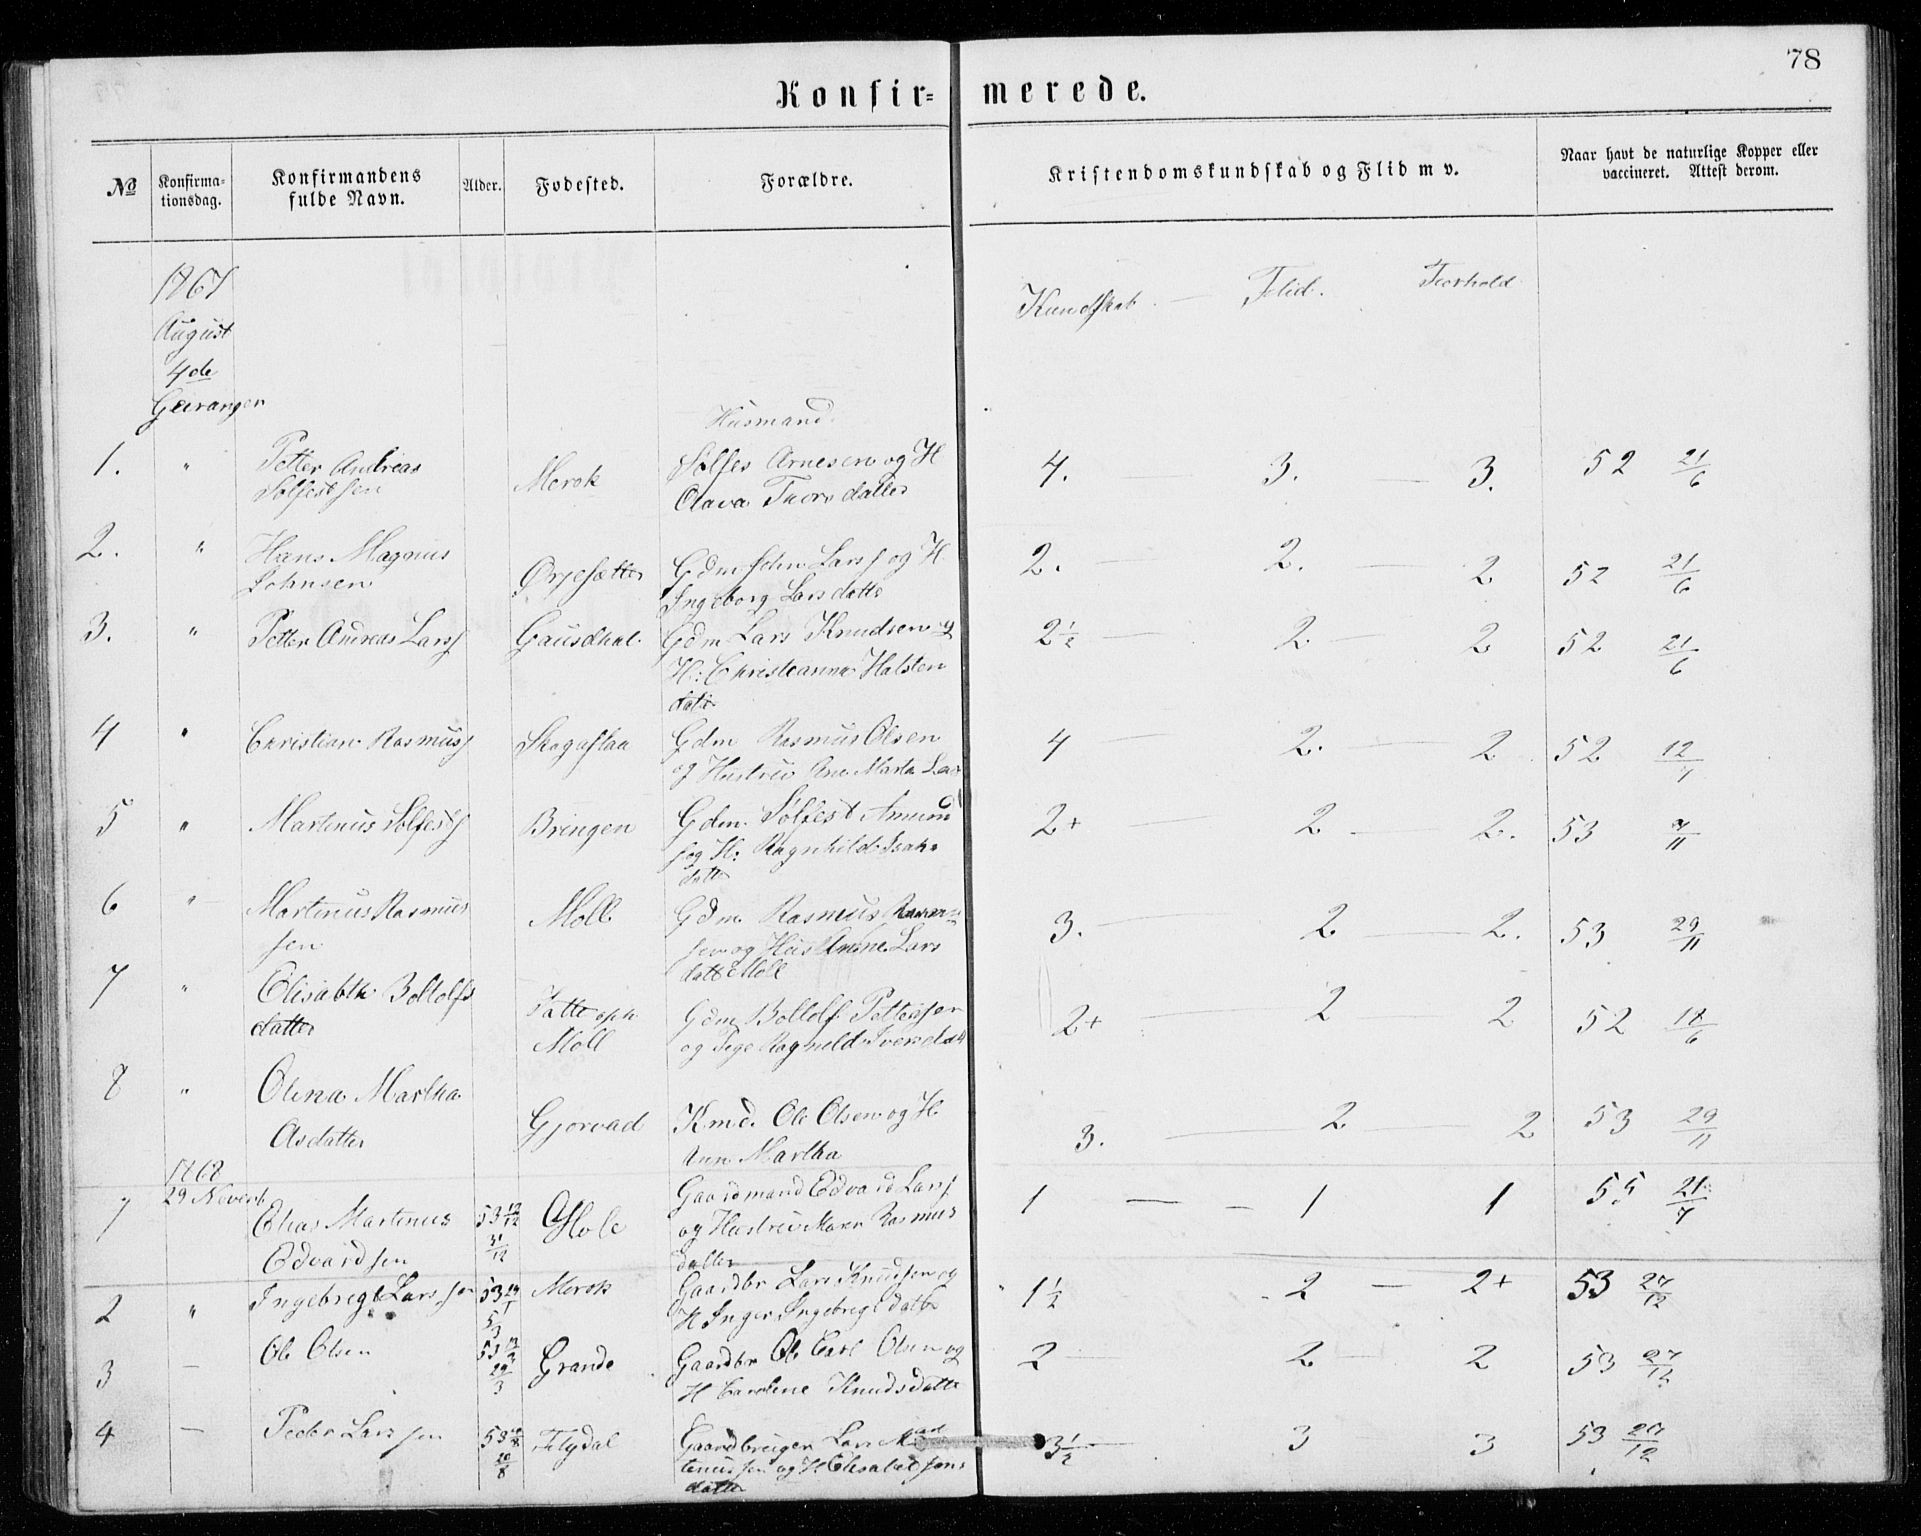 78
Konfir= merede.
No
Konfirma-
tionsdag.
Konfirmandens
fulde Navn.
Alder.
Fødested.
Forældre.
Kristendomskundskab og Flid m v.
Naar havt de naturlige Kopper eller
vaccineret. Attest derom.
1867
August
4de
Geiranger
Kundskab — Flid. Forhold
Husmand
1. " Petter Andreas Merok Sølfest Arnesen og H 4. — 3. — 3. 52 21/6
Solfestsen Olava Thors datter
2. " Hans Magnus Ørjesætter Gdm John Larss og H. 2. — 2. — 2 52 21/6
Johnsen Ingeborg Larsdatter
3. " Petter Andreas Larss Gausdhal Gdm Lars Knudsen og 2½ — 2 — 2 52 21/6
H: Christeanna Halsten
datr
4 " Christian Rasmuss Skagaflaa Gdm Rasmus Olsen 4 — 2. — 2 52 12/7
og Hustru Ane Marta Lar
5 " Martinus Solfests Bringen Gdm. Sølfest Amund 2+ — 2 — 2. 53 9/11
s og H: Ragnhild Isaks
datter
6 " Martinus Rasmus Moll Gdm Rasmus 3. — 2 — 2. 53 29/11
sen sen og Hus Anne Lars
datt Moll
7 " Elisabth Boltolfs Gdm Boltolf Pettersen 2+ — 2 2 52 18/6
datter Moll og Pige Ragneld Iversdatt
8 " Olena Martha Gjorvad Kmd. Ole Olsen og H. 3. — 2 — 2 53 29/11
Osdatter Ann Martha
1868
29 Novenb
1 Elias Martinus 53 Hole Gaardmand Edvard Larss 1 — 1 1 55 21/7
Edvardsen 31/12 og Hustru Maren Rasmus
datter
2 " Ingebregt Larssen 53 Merok Gaardbr Lars Knudsen og 1½ 2 — 2+ 53 27/12
5/3 H Inger Ingebregtdatter
3 — Ole Olsen 53 Grande Gaardbr Ole Carl Olsen og 2 — 2 — 2 53 27/12
29/3 H Caroline Knudsdatte
4 — Peder Larssen 53 Flydal Gaardbruger Lars Mar 3½ — 3 3 53 27/12
20/8 tinussen og H Elisabet Jons
datter